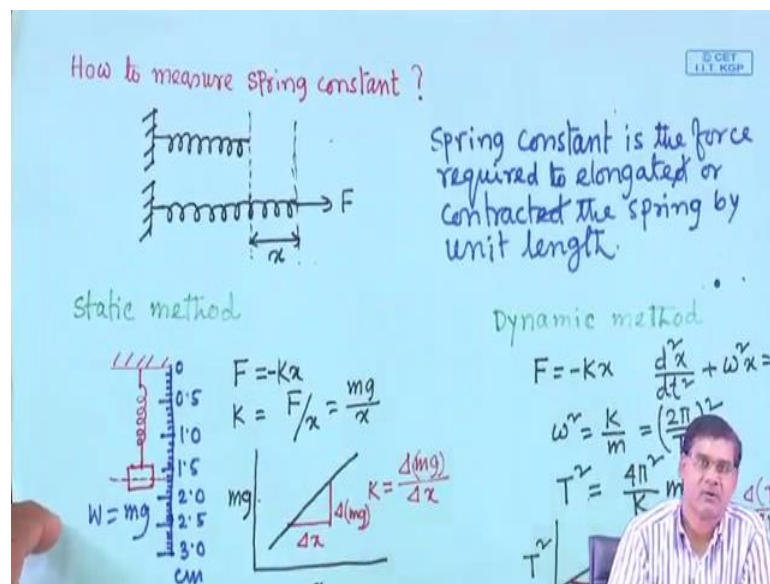 How to measure spring constant?
© CET
I.I.T. KGP
F
x
Spring constant is the force
required to elongated or
contracted the spring by
unit length.
Static method
0
0.5
1.0
1.5
2.0
2.5
3.0
cm
W = mg
F = -Kx
K = F/x = mg/x
mg
Δ(mg)
Δx
K = Δ(mg)/Δx
Dynamic method
F = -Kx d²x/dt² + ω²x =
ω² = K/m = (2π/
T² = 4π²/K m
T²